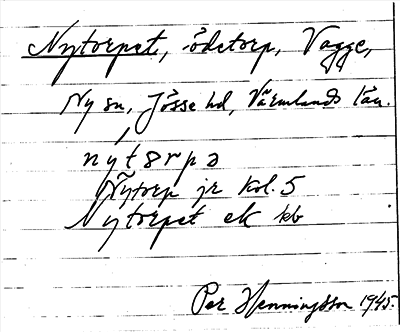 Nytorpet, ödetorp, Vagge,
Ny sn, Jösse hd, Värmlands län.
nýtɔrpə
Nytorp jr kol. 5
Nytorpet ek kb
Per Henningsson 1945.